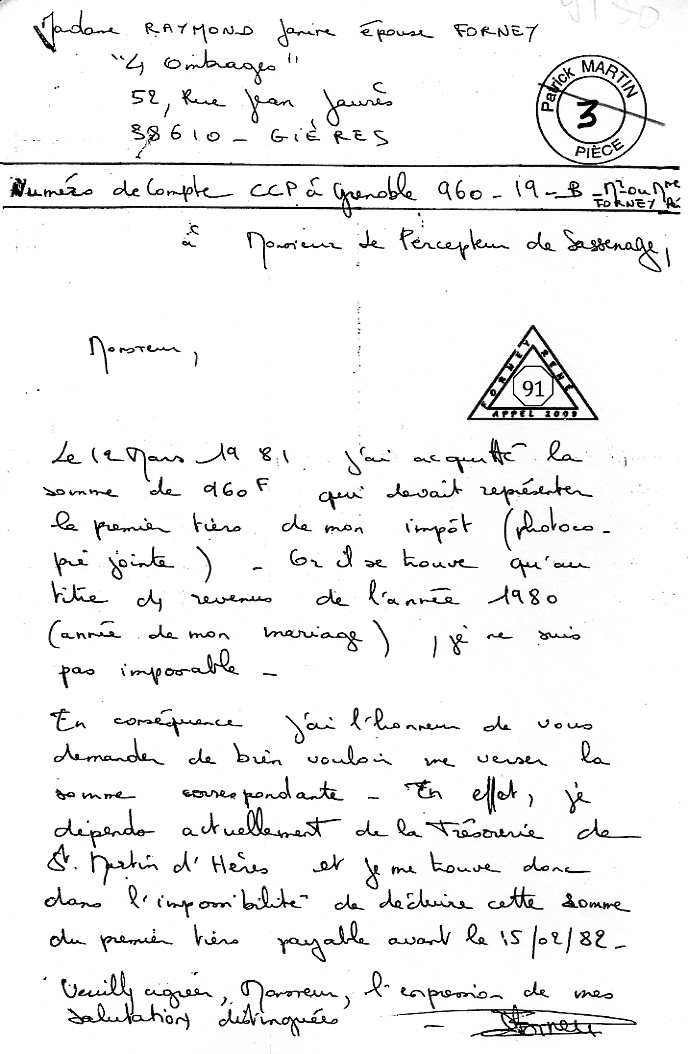 Madame RAYMOND Janine Épouse FORNEY
"Les Ombrages"
52, Rue Jean Jaurès
38610 - GIÈRES
Patrick MARTIN
3
PIÈCE
Numéro de Compte CCP à Grenoble 960 - 19 - B - Mr ou Mme
FORNEY Ré
à Monsieur Le Percepteur de Sassenage,
Monsieur,
FORNEY RENÉ
91
APPEL 2009
Le 12 Mars 1981 j'ai acquitté la
somme de 960F qui devait représenter
le premier tiers de mon impôt (photoco-
pie jointe) - Or il se trouve qu'au
titre des revenus de l'année 1980
(année de mon mariage), je ne suis
pas imposable -
En conséquence j'ai l'honneur de vous
demander de bien vouloir me verser la
somme correspondante - En effet, je
dépends actuellement de la Trésorerie de
St. Martin d'Hères et je me trouve donc
dans l'impossibilité de déduire cette somme
du premier tiers payable avant le 15/02/82 -
Veuillez agréer, Monsieur, l'expression de mes
salutations distinguées -
Forney